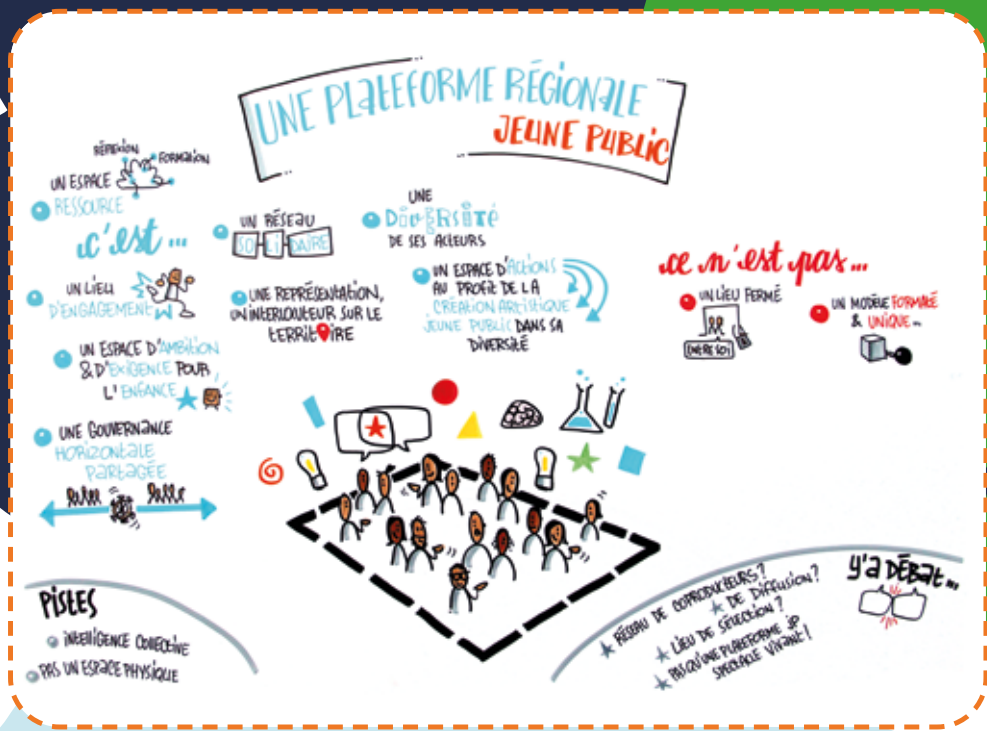 UNE PLATEFORME RÉGIONALE
JEUNE PUBLIC
c'est...
RÉFLEXION
FORMATION
UN ESPACE
RESSOURCE
UN LIEU
D'ENGAGEMENT
UN ESPACE D'AMBITION
& D'EXIGENCE POUR
L'ENFANCE
UNE GOUVERNANCE
HORIZONTALE
PARTAGÉE
UN RÉSEAU
SOLIDAIRE
UNE REPRÉSENTATION,
UN INTERLOCUTEUR SUR LE
TERRITOIRE
UNE
DIVERSITÉ
DE SES ACTEURS
UN ESPACE D'ACTIONS
AU PROFIT DE LA
CRÉATION ARTISTIQUE
JEUNE PUBLIC DANS SA
DIVERSITÉ
ce n'est pas...
UN LIEU FERMÉ
ENTRE SOI
UN MODÈLE FORMATÉ
& UNIQUE...
PISTES
INTELLIGENCE COLLECTIVE
PAS UN ESPACE PHYSIQUE
Y'A DÉBAT...
RÉSEAU DE COPRODUCTEURS?
DE DIFFUSION?
LIEU DE SÉLECTION?
PAS QU'UNE PLATEFORME JP
SPECTACLE VIVANT!